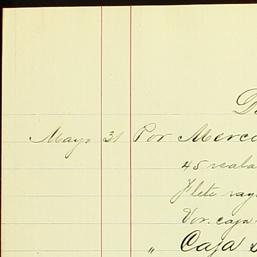 Mayo 31 Por Merca
45 reala
Flete vag
Vor. caja
" Caja